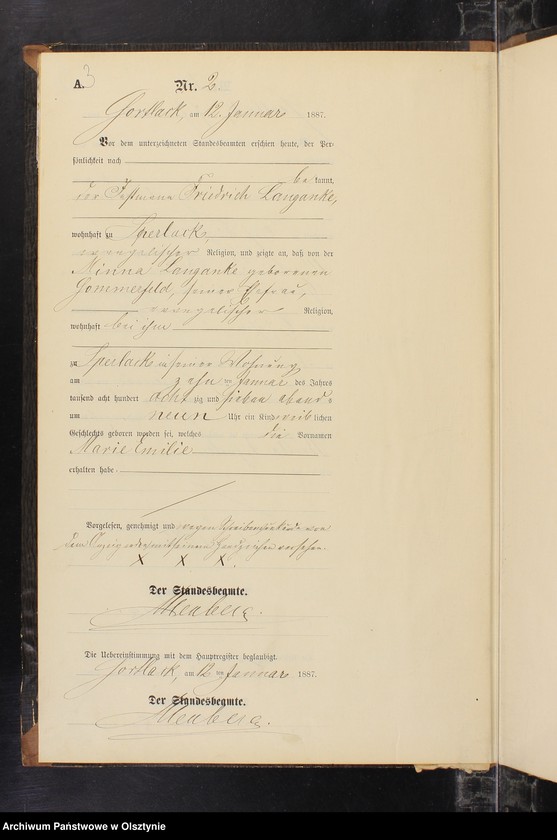 A. 3 Nr. 2.
Gortlack, am 12. Januar 1887.
Vor dem unterzeichneten Standesbeamten erschien heute, der Per-
sönlichkeit nach
be kannt,
der Instmann Friedrich Langanke,
wohnhaft zu Sperlack,
evangelischer Religion, und zeigte an, daß von der
Minna Langanke geborenen
Gommerfeld, seiner Ehefrau,
evangelischer Religion,
wohnhaft bei ihm
zu Sperlack in seiner Wohnung
am zehn ten Januar des Jahres
tausend acht hundert acht zig und sieben abends
um neun Uhr ein Kind weib lichen
Geschlechts geboren worden sei, welches die Vornamen
Marie Emilie
erhalten habe.
Vorgelesen, genehmigt und wegen Schreibensunkunde von
dem mit seinem Handzeichen versehen.
X X X.
Der Standesbeamte.
Die Uebereinstimmung mit dem Hauptregister beglaubigt.
Gortlack, am 12 ten Januar 1887.
Der Standesbeamte.
Archiwum Państwowe w Olsztynie